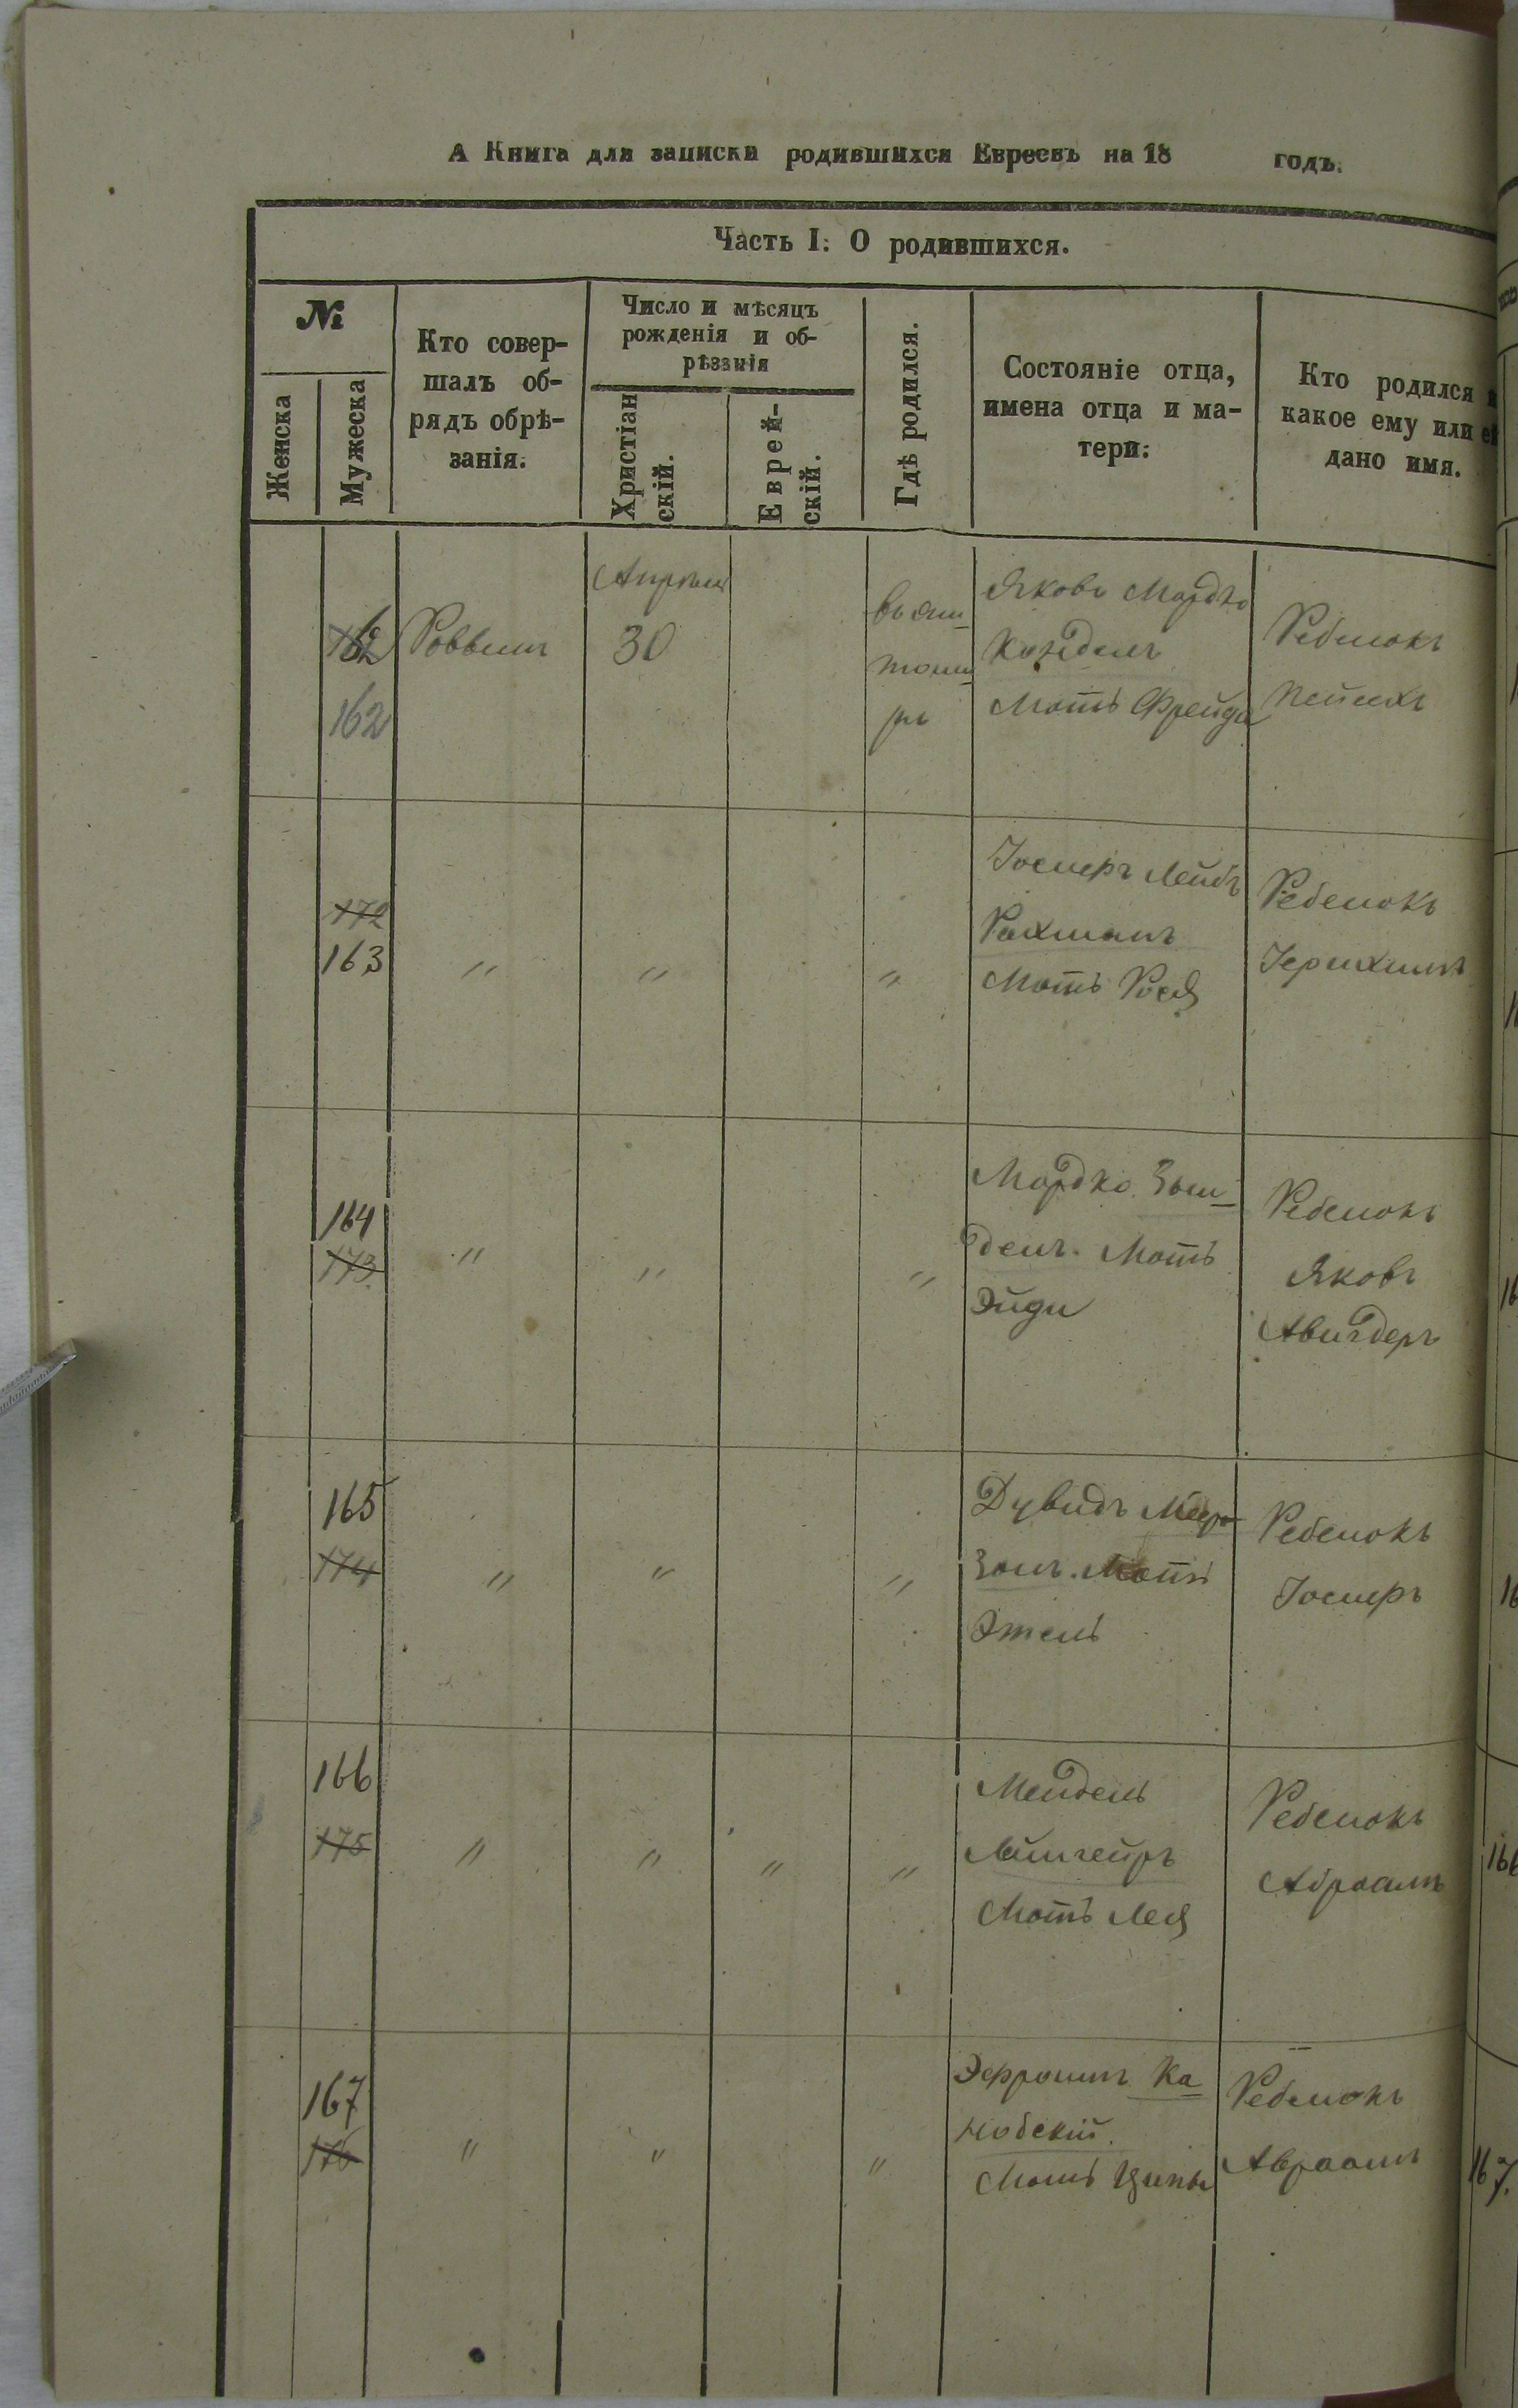 А Книга для записки родившихся Евреевъ на 18 годъ.
Часть I: О родившихся.
№
Женска
Мужеска
Кто совер-
шалъ об-
рядъ обрѣ-
занія.
Число и мѣсяцъ
рожденія и об-
рѣзанія
Христіан
скій.
Еврей-
скій.
Гдѣ родился.
Состояніе отца,
имена отца и ма-
тери:
Кто родился и
какое ему или ей
дано имя.
162
162
Раввинъ
30
Яковъ Мордко
Мать Фрейда
Ребенокъ
Пейсехъ
172
163
"
"
"
Іосифъ Лейбъ
Рахманъ
Мать Рося
Ребенокъ
164
173
"
"
"
Мордко Зай-
денъ. Мать
Эйди
Ребенокъ
Яковъ
Авигдеръ
165
174
"
"
"
Дувидъ
Мать
Этель
Ребенокъ
Іосифъ
166
175
"
"
"
"
Мендель
Мать Лея
Ребенокъ
Абраамъ
167
176
"
"
"
Эфроимъ Ка
новскій.
Мать Ципа
Ребенокъ
Авраамъ
166
167.